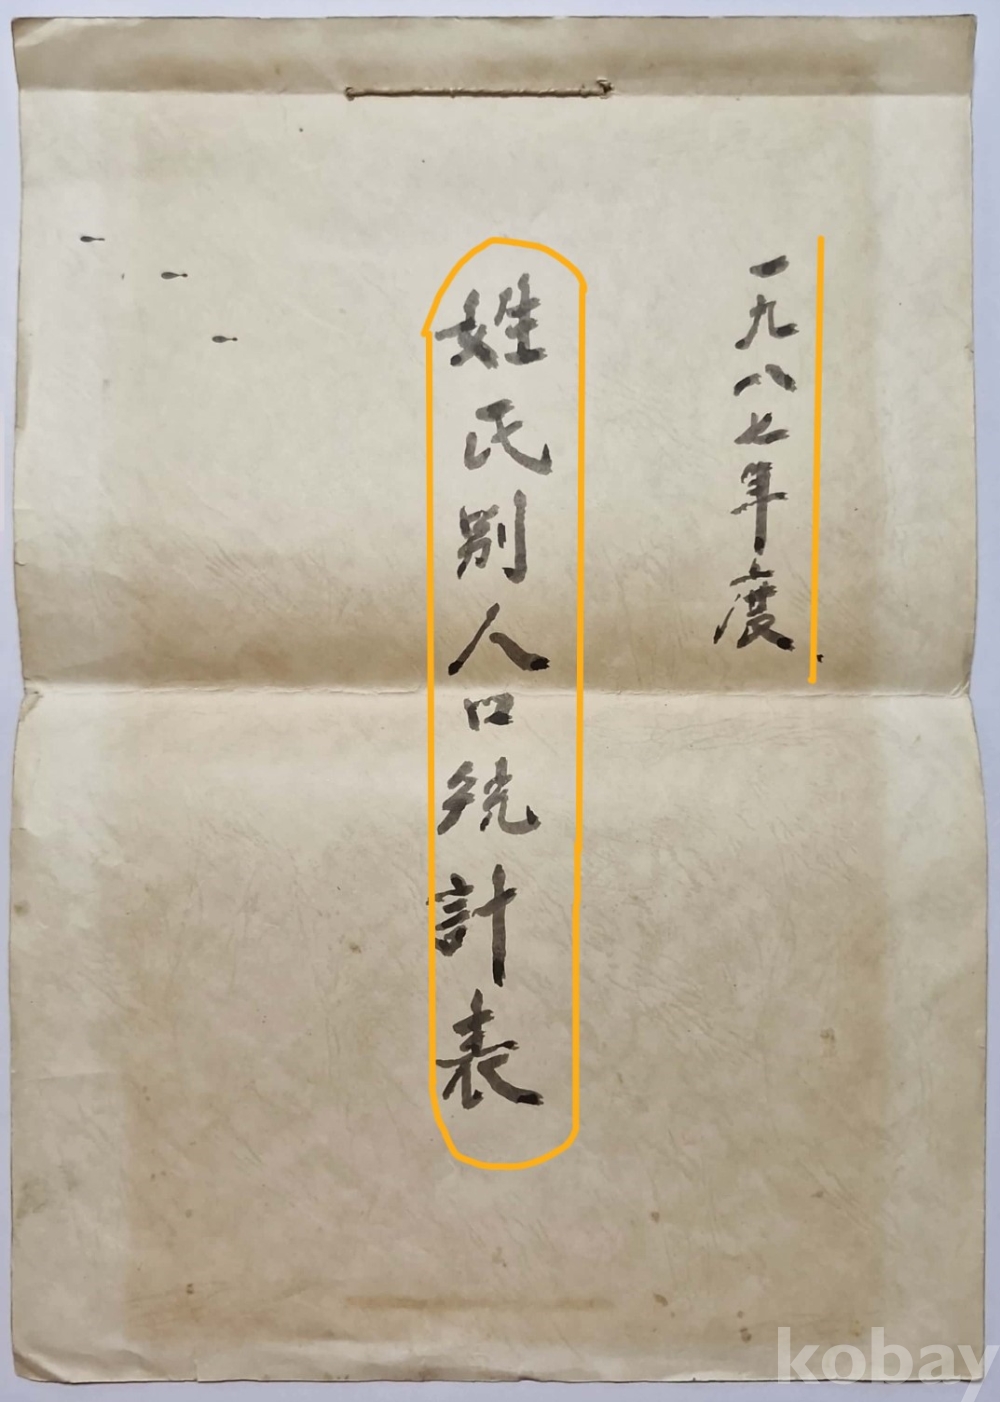 一九八七年度
姓氏别人口統計表
kobay